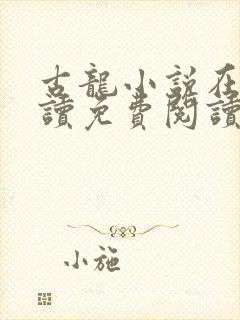 古龍小說在
讀免費閱讀
小施